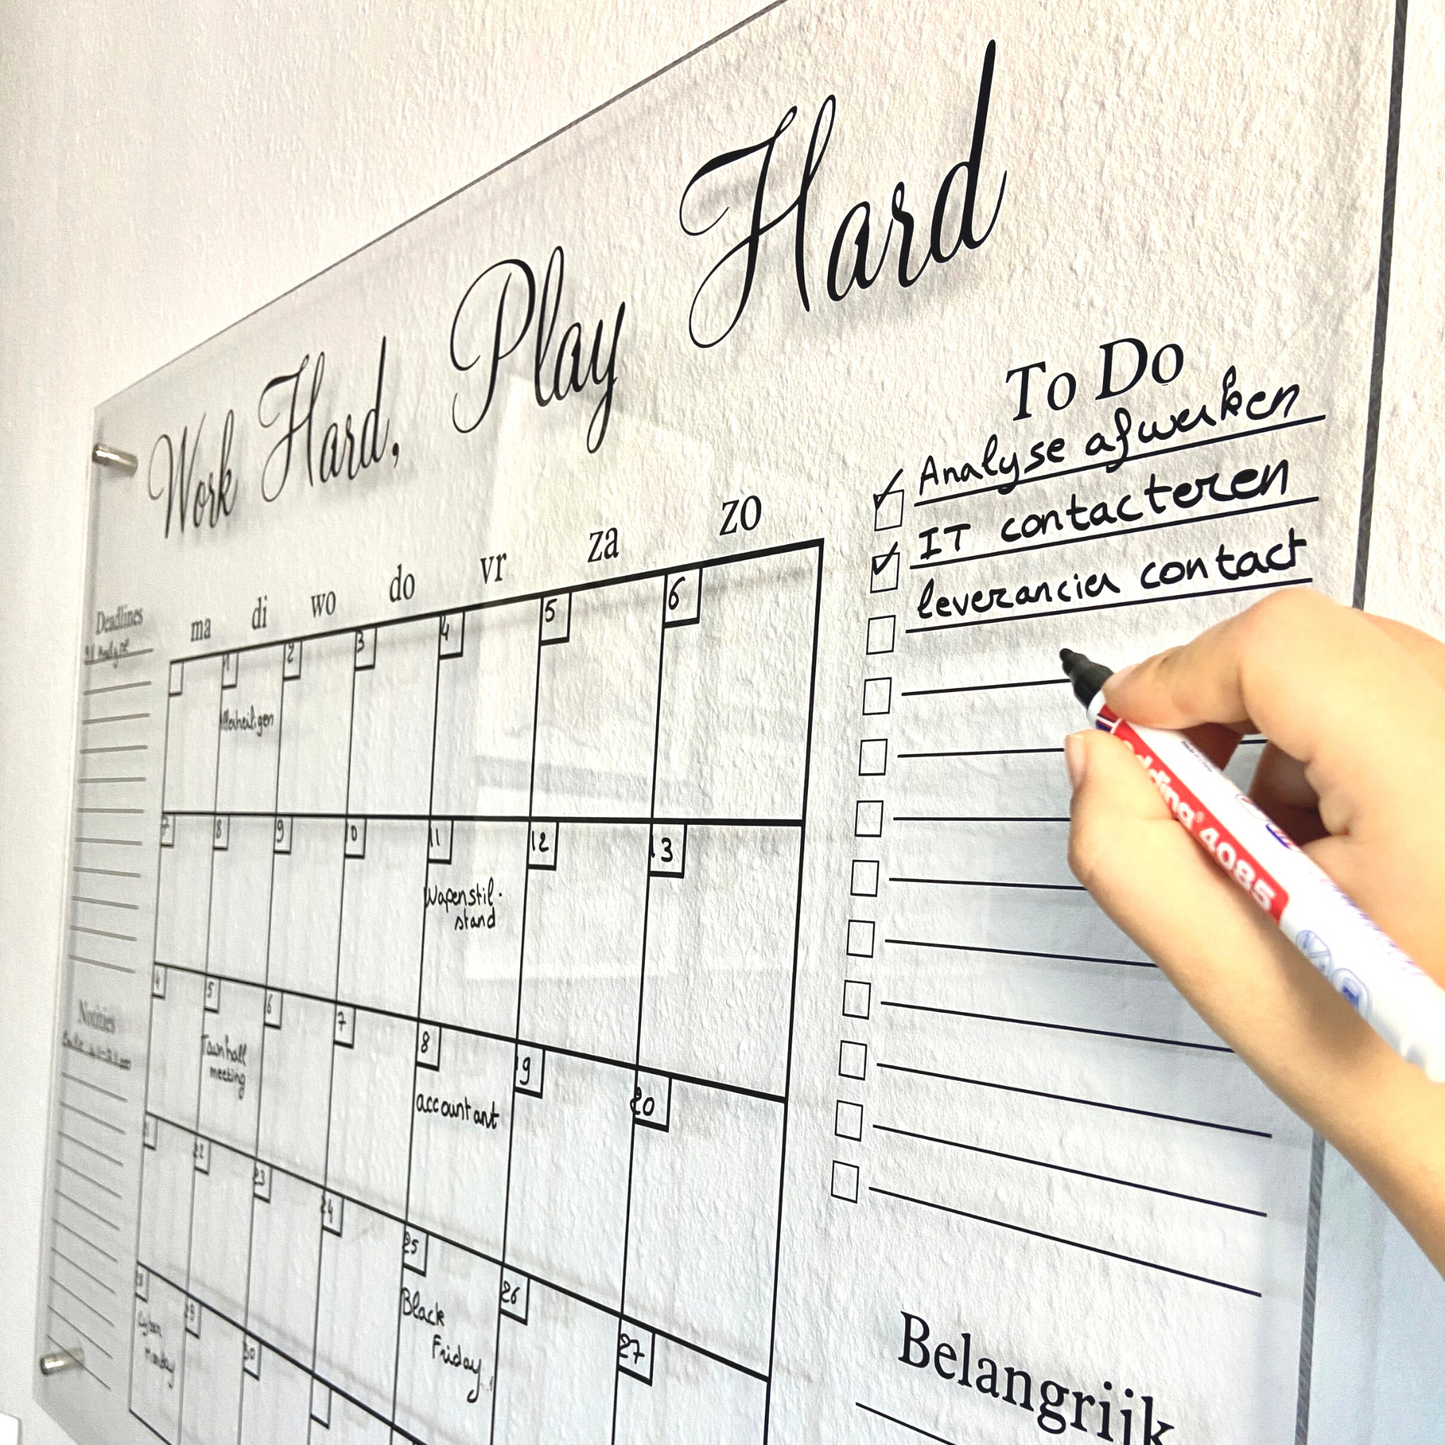 Work Hard, Play Hard
To Do
Analyse afwerken
IT contacteren
leverancier contact
Deadlines
ma di wo do vr za zo
1 2 3 4 5 6
Allerheiligen
7 8 9 10 11 12 13
Wapenstil-
stand
Notities
4 5 6 7 8 19 20
Townhall
meeting
accountant
22 23 24 25 26 27
Black
Friday
28 29 30
Cyber
Monday
Belangrijk
edding® 4085